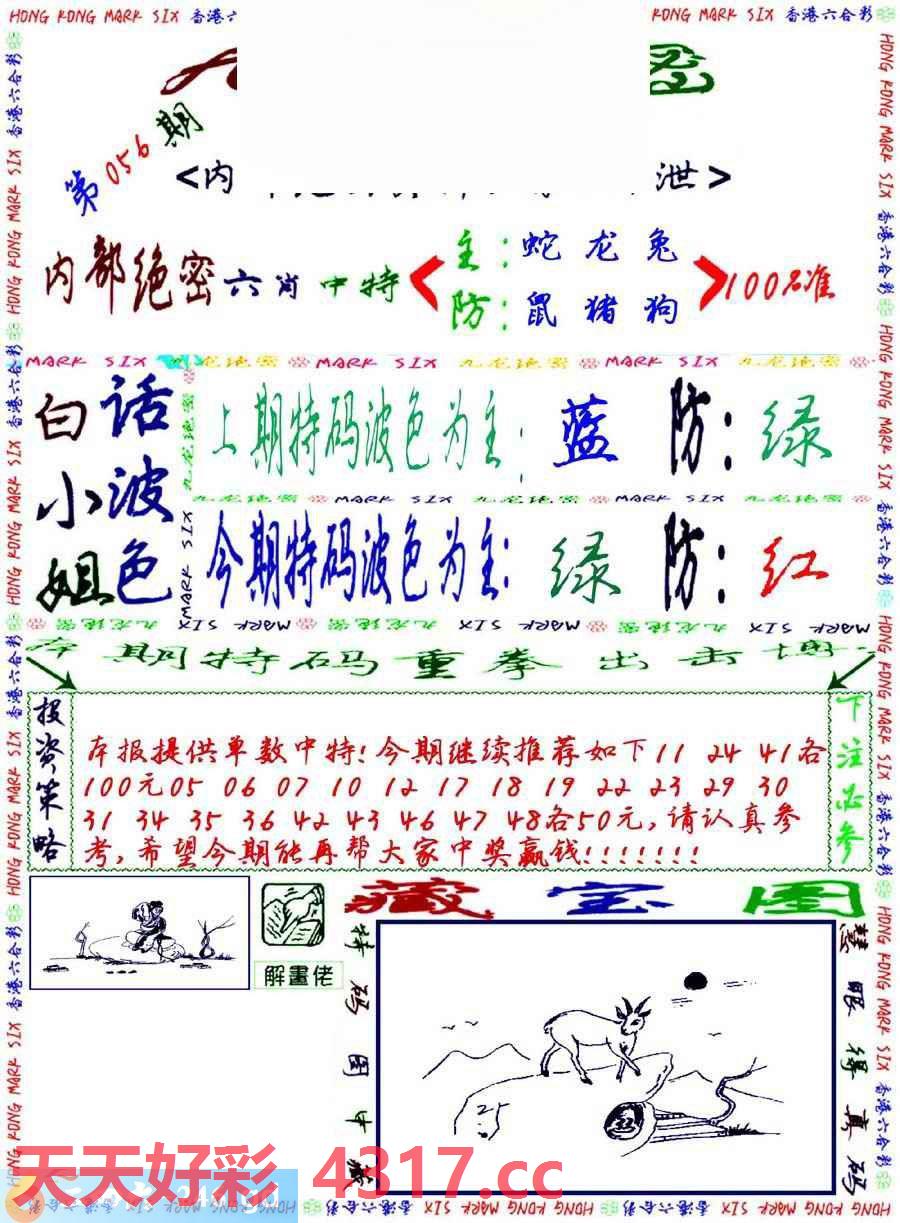 HONG KONG MARK SIX 香港六合彩
KONG MARK SIX 香港六合彩
第056期
<内
泄>
内部绝密六肖中特
主:蛇龙兔
防:鼠猪狗
100%准
MARK SIX 九龙绝密 MARK SIX 九龙绝密 MARK SIX 九龙绝密
白话
小波
姐色
上期特码波色为主: 蓝 防: 绿
九龙绝密 MARK SIX 九龙绝密 MARK SIX 九龙绝密 MARK SIX
今期特码波色为主: 绿 防: 红
本期特码重拳出击
投资策略
本报提供单数中特!今期继续推荐如下11 24 41各
100元05 06 07 10 12 17 18 19 22 23 29 30
31 34 35 36 42 43 46 47 48各50元,请认真参
考,希望今期能再帮大家中奖赢钱!!!!!!!
下注必参
藏宝图
解畫佬
特码图中藏
慧眼得真码
25
天天好彩 4317.cc